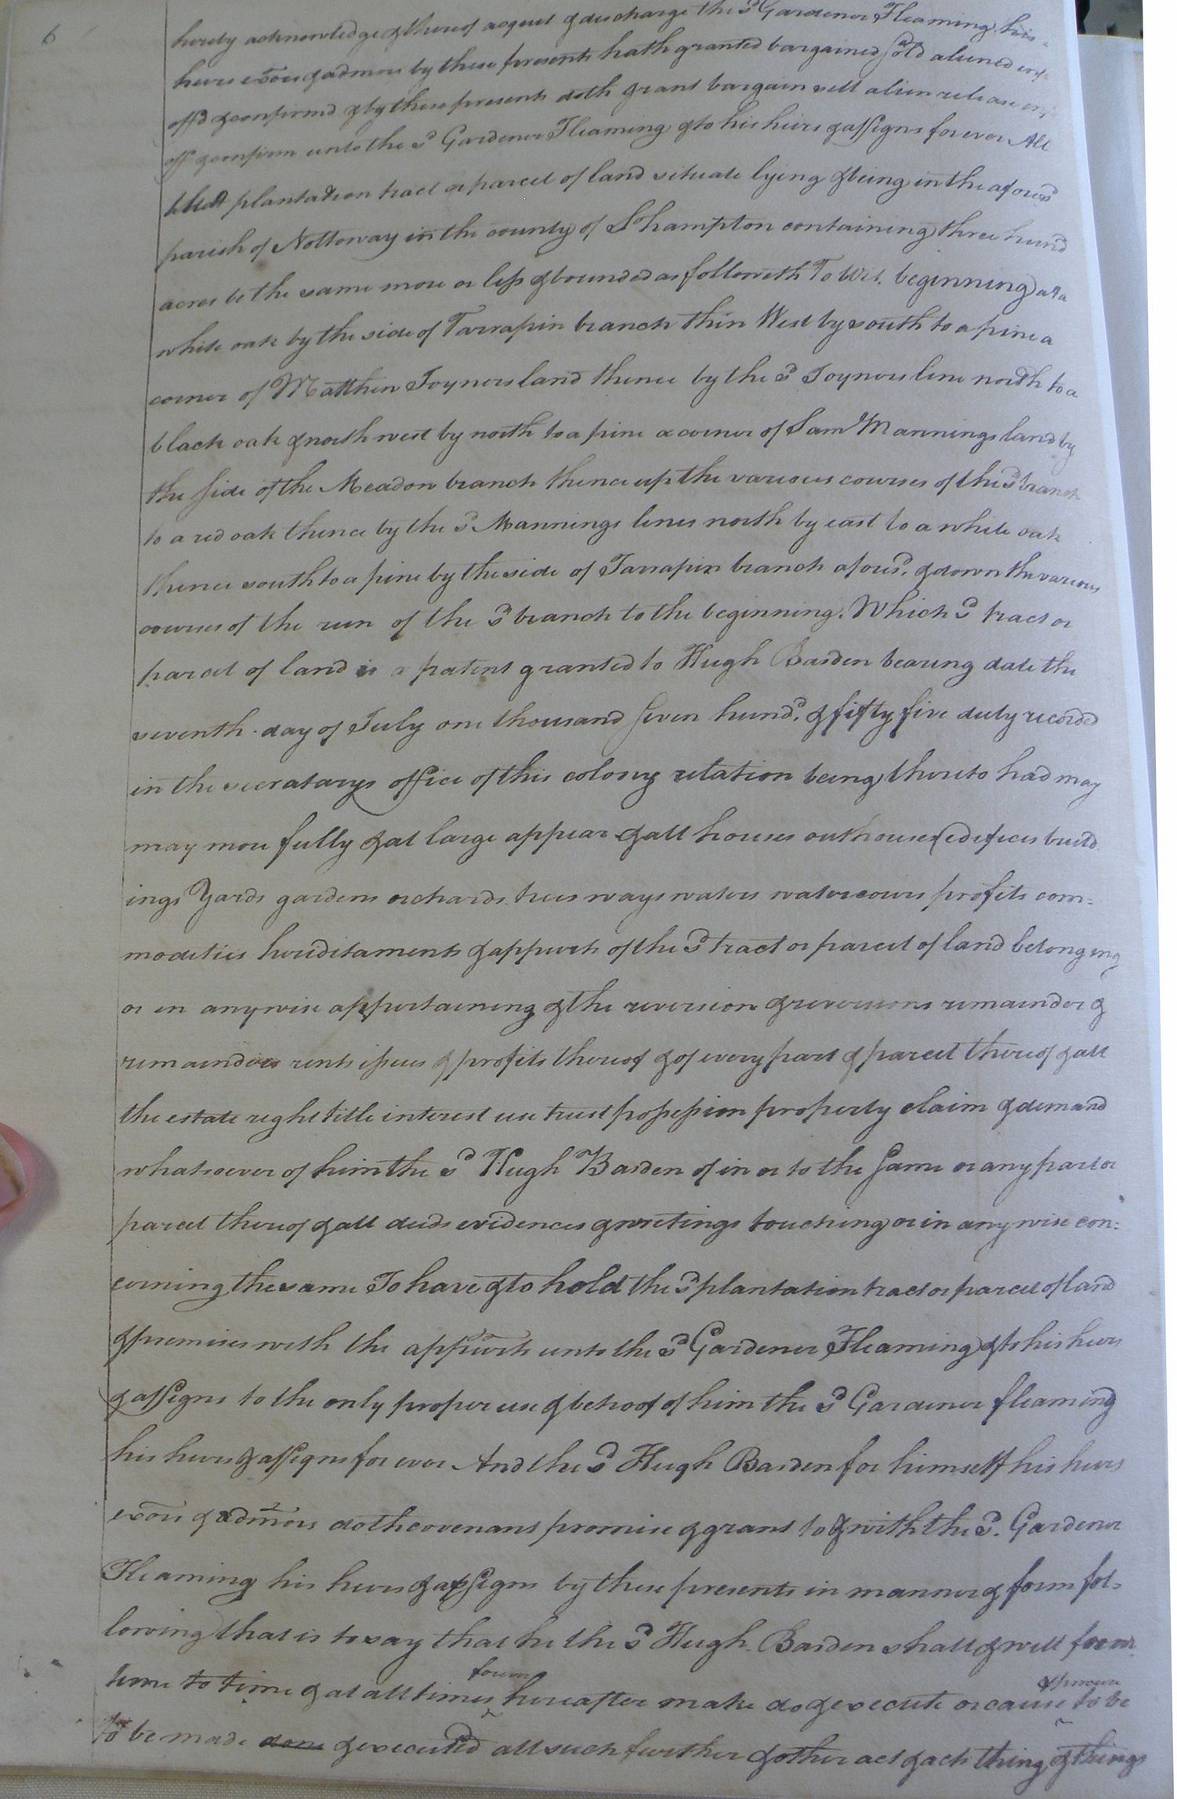 6
hereby acknowledge & thereof acquit & discharge the sd Gardener Fleaming his
heirs exōrs & admors by these presents hath granted bargained sold aliened
& confirmd & by these presents doth grant bargain sell alien release
& confirm unto the sd Gardener Fleaming & to his heirs & assigns for ever All
that plantation tract or parcel of land situate lying & being in the aforesd
parish of Nottoway in the county of So hampton containing three hund
acres be the same more or less & bounded as followeth To Wit. beginning at a
white oak by the side of Tarrapin branch thin West by south to a pine a
corner of Matthew Joyners land thence by the sd Joyners line north to a
black oak & north west by north to a pine a corner of Sam Mannings land by
the side of the Meadow branch thence up the various courses of the sd branch
to a red oak thence by the sd Mannings lines north by east to a white oak
thence south to a pine by the side of Tarrapin branch aforesd. & down the various
courses of the run of the sd branch to the beginning. Which sd tract or
parcel of land is a patent granted to Hugh Barden bearing date the
seventh day of July one thousand seven hund. & fifty five duly recorded
in the secratarys office of this colony relation being thereto had may
may more fully & at large appear & all houses outhouses edifices build
ings Yards gardens orchards trees ways waters watercours profits com=
modities hereditaments & appurts of the sd tract or parcel of land belonging
or in anywise appertaining & the reversion & reversions remainder &
remainders rents issues & profits thereof & of every part & parcel thereof & all
the estate right title interest use trust possession property claim & demand
whatsoever of him the sd Hugh Barden of in or to the same or any part or
parcel thereof & all deeds evidences & writings touching or in any wise con=
cerning the same To have & to hold the sd plantation tract or parcel of land
& premises with the appurts unto the sd Gardener Fleaming & to his heirs
& assigns to the only proper use & behoof of him the sd Gardener fleaming
his heirs & assigns for ever And the sd Hugh Barden for himself his heirs
exōrs & admors doth covenant promise & grant to & with the sd. Gardener
Fleaming his heirs & assigns by these presents in manner & form fol=
lowing that is to say that he the sd Hugh Barden shall & will from
time to time & at all times forever hereafter make do & execute or cause & procure to be
to be made done & executed all such further & other act & acts thing & things